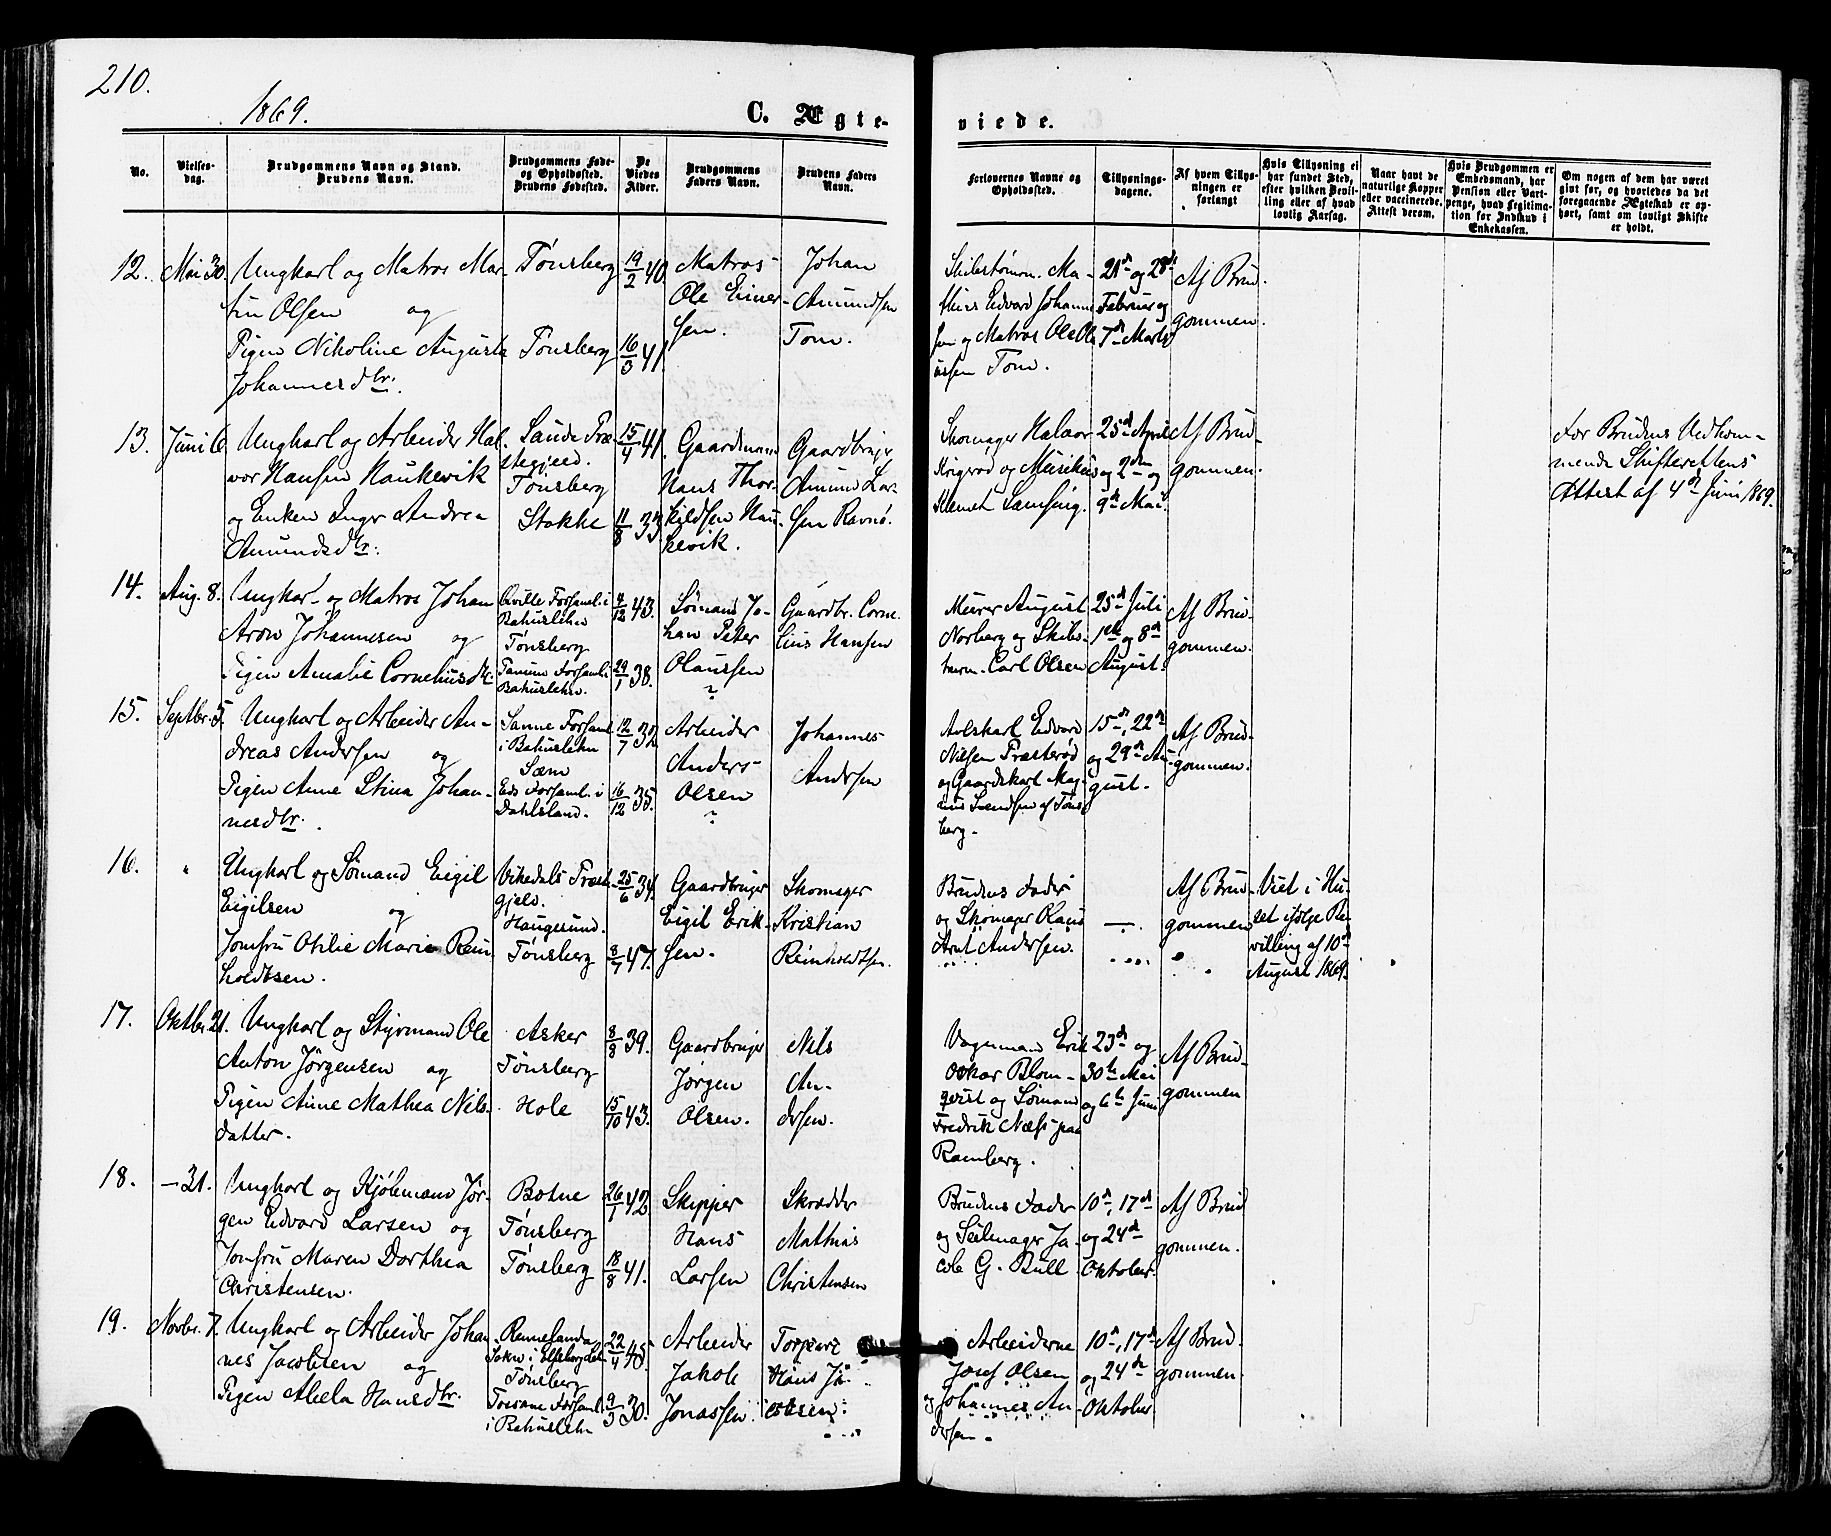 210.
1869.
C. Ægte-
viede.
No.
Vielses-
dag.
Brudgommens Navn og Stand.
Brudens Navn.
Brudgommens Føde-
og Opholdssted.
Brudens Fødested.
De
Viedes
Alder.
Brudgommens
Faders Navn.
Brudens Faders
Navn.
Forlovernes Navne og
Opholdssted.
Tillysnings-
dagene.
Af hvem Tillys-
ningen er
forlangt
Hvis Tillysning ei
har fundet Sted,
efter hvilken Bevil-
ling eller af hvad
lovlig Aarsag.
Naar havt de
naturlige Kopper
eller vaccinerede.
Attest derom.
Hvis Brudgommen er
Embedsmand, har
Pension eller Vart-
penge, hvad Legitima-
tion for Indskud i
Enkekassen.
Om nogen af dem har været
gift før, og hvorledes da det
foregaaende Ægteskab er op-
hørt, samt om lovligt Skifte
er holdt.
12.
Mai 30.
Ungkarl og Matros Mar-
tin Olsen og
Pigen Nikoline Auguste
Johannesdtr.
Tønsberg
Tønsberg
19/2 40.
16/3 41.
Matros
Ole Einer-
sen.
Johan
Amundsen
Tom.
Skibstømrm. Ma-
thias Edvard Johanne
sen og Matros Ole Ol
Tom.
21de og 28de
Februar og
7de Marts
Af Brud-
gommen.
13.
Juni 6.
Ungkarl og Arbeider Hal-
vor Hansen Haukevik
og Enken Inger Andrea
Amundsdtr.
Sande Præ-
stegjeld.
Tønsberg
Stokke
15/4 41.
11/8 33
Gaardmand
Hans Thor-
kildsen Hau-
kevik.
Gaardbruger
Amund Lar-
sen Ravnø.
Skomager Halvor
Krigerød og Musikus
Klemet Lensing.
25de April
og 2den og
9de Mai.
Af Brud-
gommen.
For Brudens Vedkom-
mende Skifterettens
Attest af 4de Juni 1869.
14.
Aug. 8.
Ungkarl og Matros Johan
Aron Johannesen og
Pigen Amalie Corneliusdtr.
Qville Forsaml. i
Bahuslehn
Tønsberg
Tanum Forsaml. i
Bahuslehn.
4/12 43.
29/1 38.
Sømand Jo-
han Peter
Olaussen
?
Gaardbr. Corne-
lius Hansen
Murer August
Norberg og Skibs-
tmrm. Carl Olsen
25de Juli
1ste og 8de
August.
Af Brud-
gommen.
15.
Septbr. 5.
Ungkarl og Arbeider An-
dreas Andersen og
Pigen Anne Stina Johan-
nesdtr.
Sanne Forsaml.
i Bahuslehn
Sæm
Eds Forsaml. i
Dahlsland.
12/7 32
16/12 35.
Arbeider
Anders
Olsen
?
Johannes
Andersen
Avlskarl Edvard
Nilsen Præsterød
og Gaardskarl Mag-
nus Svendsen af Tøns-
berg.
15de, 22de
og 29de Au-
gust.
Af Brud-
gommen.
16.
"
Ungkarl og Sømand Eigil
Eigilsen og
Jomfru Otilie Marie Rein
holdtsen.
Vikedals Præst-
gjeld.
Haugesund.
Tønsberg
25/6 34.
8/7 47.
Gaardbruger
Eigil Erik-
sen.
Skomager
Kristian
Reinholdtsen.
Brudens Fader
og Skomager Hans
Arnt Andersen.
—.
Af Brud-
gommen
Viet i Hu-
set ifølge Be-
villing af 10de
August 1869.
17.
Oktbr. 21.
Ungkarl og Styrmand Ole
Anton Jørgensen og
Pigen Anne Mathea Nils-
datter.
Asker
Tønsberg
Hole
8/8 39.
15/10 43.
Gaardbruger
Jørgen
Olsen.
Nils
An-
dersen.
Vognmand Erik
Oskar Blom-
qvist og Sømand
Fredrik Næss paa
Ramberg.
23de og
30te Mai
og 6te Juni
Af Brud-
gommen
18.
— 31.
Ungkarl og Kjøbmand Jør-
gen Edvard Larsen og
Jomfru Maren Dorthea
Christensen.
Botne
Tønsberg
Tønsberg
26/1 42
18/8 41.
Skipper
Hans
Larsen
Skrædder
Mathias
Christensen
Brudens Fader
og Seilmager Ja-
cob G. Bull
10de, 17de
og 24de
Oktober.
Af Brud
gommen.
19.
Novbr. 7.
Ungkarl og Arbeider Johan
nes Jacobsen og
Pigen Abela Hansdtr.
Rennelanda
Sokn i Elfsborg Lel-
Tønsberg
Tossene Forsaml.
i Bahuslehn
22/4 45.
9/3 30.
Arbeider
Jakob
Jonassen
Torpare
Hans Ja-
cobsen.
Arbeiderne
Josef Olsen
og Johannes An-
dersen.
10de, 17de
og 24de
Oktober
Af Brud-
gommen.